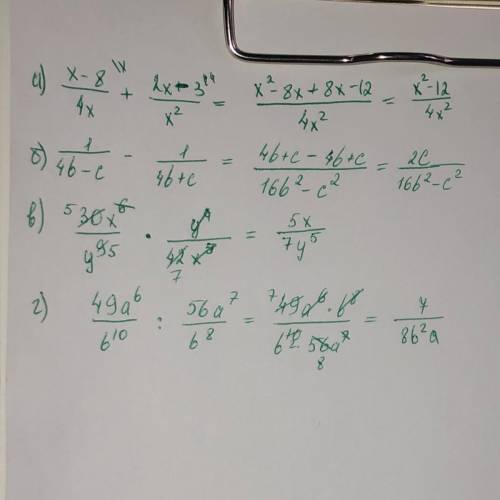 а) (x-8)/(4x) \x + (2x-3)/(x²) \4 = (x²-8x+8x-12)/(4x²) = (x²-12)/(4x²)
б) 1/(4b-c) - 1/(4b+c) = (4b+c-4b+c)/(16b²-c²) = 2c/(16b²-c²)
в) 5 30x⁶/y⁹ 5 · y⁴/(42x⁵) 7 = 5x/(7y⁵)
г) 49a⁶/b¹⁰ : 56a⁷/b⁸ = 7 49a⁶·b⁸/(b¹⁰·56a⁷) 8 = 7/(8b²a)